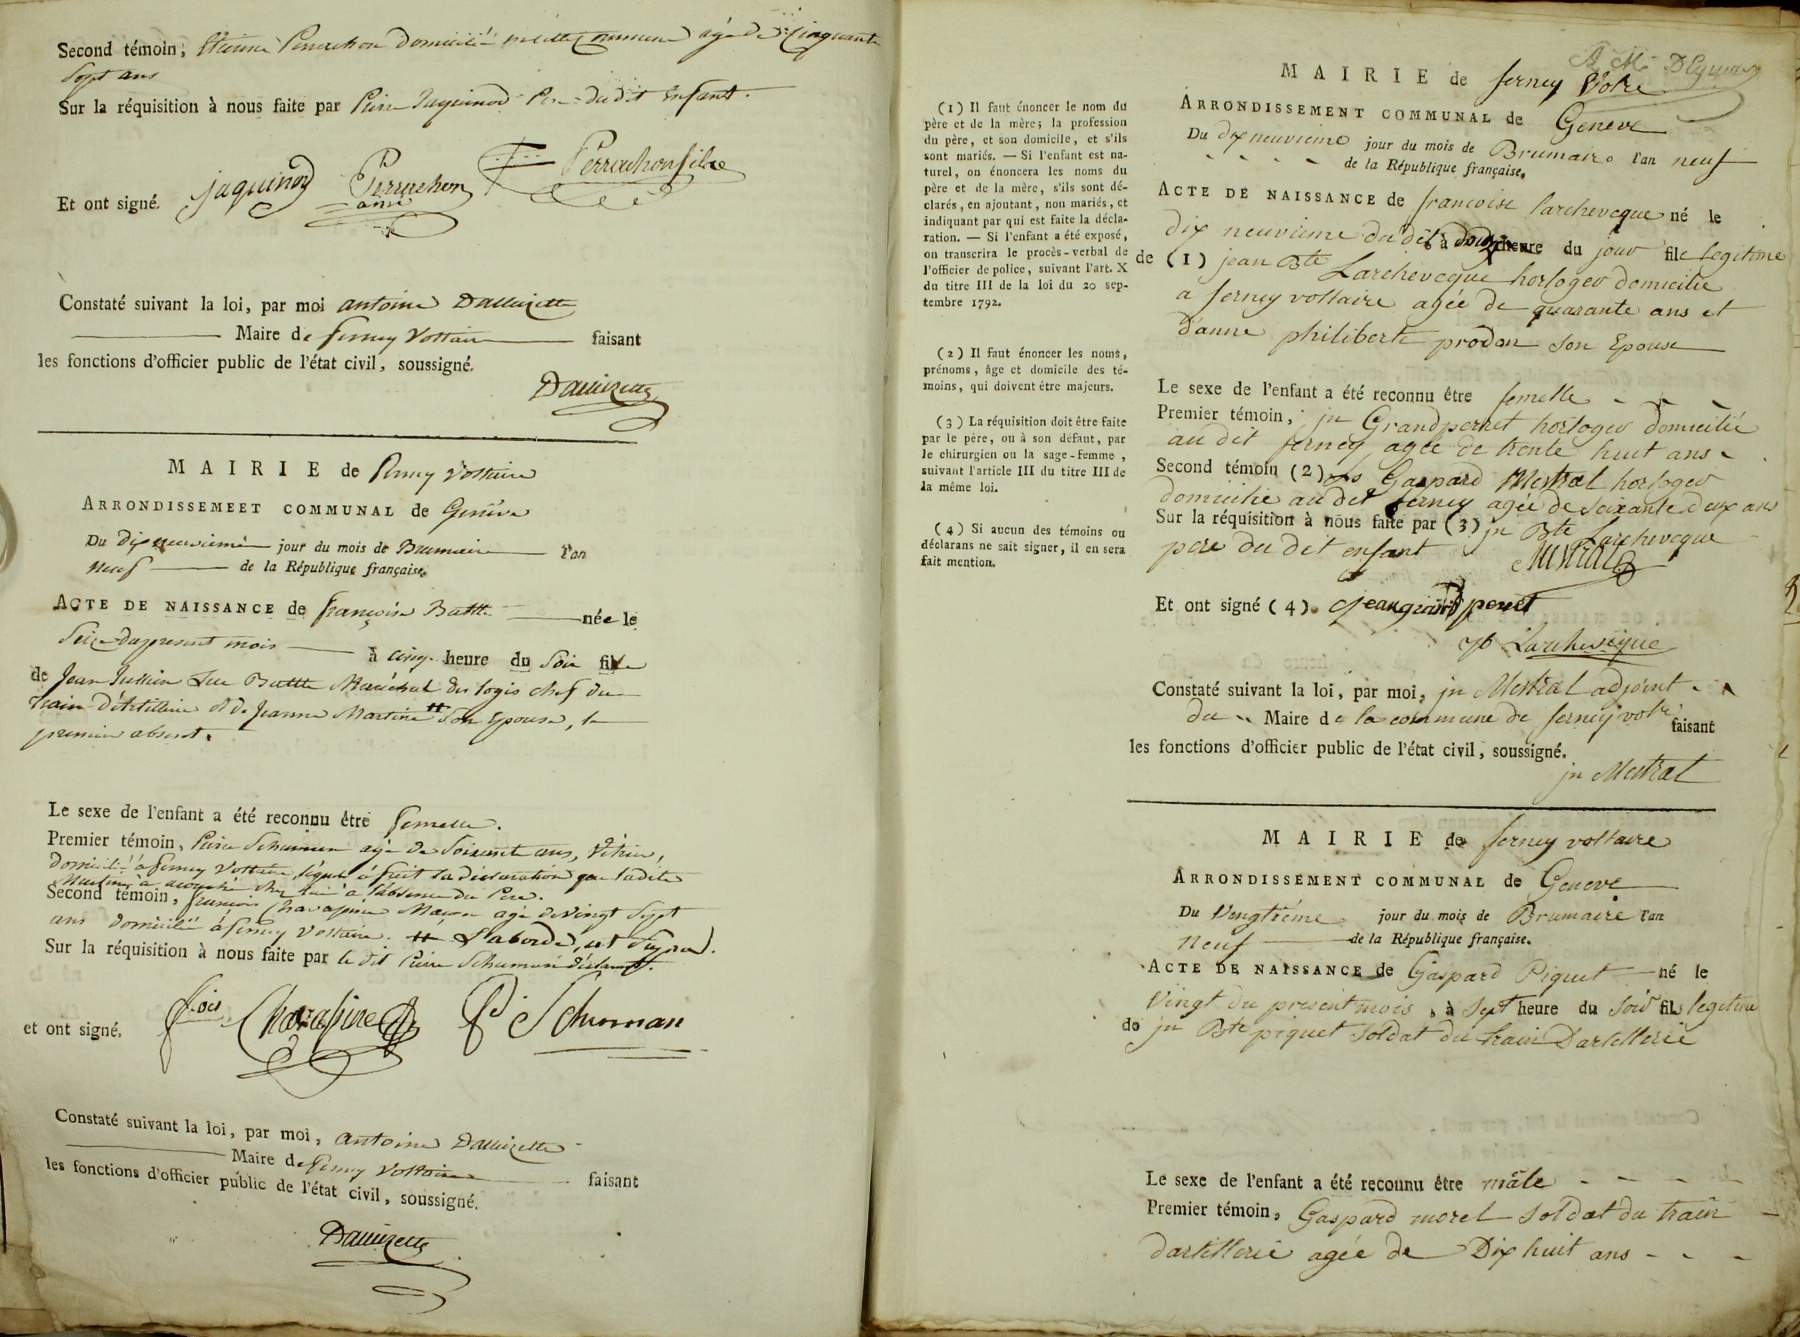 Second témoin, Etienne Perrachon domicilié agé de Cinquante
Sept ans
Sur la réquisition à nous faite par Pierre Jaquinod Pere du dit Enfant.
Et ont signé. jaquinod Perrachon Perrachon filie
Constaté suivant la loi, par moi antoine Dallizette
Maire de ferney Voltaire faisant
les fonctions d'officier public de l'état civil, soussigné.
MAIRIE de ferney Voltaire
ARRONDISSEMEET COMMUNAL de Genève
Du Dixneuvieme jour du mois de Brumaire l'an
neuf de la République française.
ACTE DE NAISSANCE de françoise Buttle née le
Seize du present mois à cinq heure du Soir fille
de Jean Buttle Maréchal des logis chef du
train d'Artillerie et de Jeanne Martine # Son Epouse, le
premier absent.
Le sexe de l'enfant a été reconnu être femelle.
Premier témoin, Pierre Schuman agé de Soixante ans, Vitrier,
domicilié à ferney Voltaire, lequel a fait la declaration que ladite
Martine a acouché chez lui à l'absence du Pere.
Second témoin, françois Maçon agé de vingt Sept
ans domicilié à ferney Voltaire. #
Sur la réquisition à nous faite par le dit Pierre Schuman déclarant.
et ont signé. fois P. Schuman
Constaté suivant la loi, par moi, antoine Dallizette
Maire de ferney Voltaire faisant
les fonctions d'officier public de l'état civil, soussigné.
(1) Il faut énoncer le nom du
père et de la mère; la profession
du père, et son domicile, et s'ils
sont mariés. — Si l'enfant est na-
turel, on énoncera les noms du
père et de la mère, s'ils sont dé-
clarés, en ajoutant, non mariés, et
indiquant par qui est faite la décla-
ration. — Si l'enfant a été exposé,
on transcrira le procès-verbal de
l'officier de police, suivant l'art. X
du titre III de la loi du 20 sep-
tembre 1792.
(2) Il faut énoncer les noms,
prénoms, âge et domicile des té-
moins, qui doivent être majeurs.
(3) La réquisition doit être faite
par le père, ou à son défaut, par
le chirurgien ou la sage-femme,
suivant l'article III du titre III de
la même loi.
(4) Si aucun des témoins ou
déclarans ne sait signer, il en sera
fait mention.
MAIRIE de ferney Votre
ARRONDISSEMENT COMMUNAL de Geneve
Du dix neuvieme jour du mois de Brumaire l'an neuf
de la République française.
ACTE DE NAISSANCE de francoise Larcheveque né le
dix neuvieme du dit à heure du jour file legitime
de (1) jean Bte Larcheveque horloger domicilie
a ferney voltaire agée de quarante ans et
danne philiberte prodon son Epouse
Le sexe de l'enfant a été reconnu être femelle
Premier témoin, jn Grandperret horloger domicilié
au dit ferney agée de trente huit ans
Second témoin (2) Gaspard Mestral horloger
domicilie au dit ferney agée de Soixante deux ans
Sur la réquisition à nous faite par (3) jn Bte Larcheveque
pere du dit enfant Mestral
Et ont signé (4). jean grand perret
jb Larcheveque
Constaté suivant la loi, par moi, jn Mestral adjoint
du Maire de la commune de ferney votre faisant
les fonctions d'officier public de l'état civil, soussigné.
jn Mestral
MAIRIE de ferney voltaire
ARRONDISSEMENT COMMUNAL de Geneve
Du Vingtiéme jour du mois de Brumaire l'an
neuf de la République française.
ACTE DE NAISSANCE de Gaspard Piquet né le
Vingt du present mois, à sept heure du soir fils legitime
de jn Bte piquet soldat du train Dartillerie
Le sexe de l'enfant a été reconnu être mâle
Premier témoin, Gaspard morel soldat du train
dartillerie agée de Dix huit ans